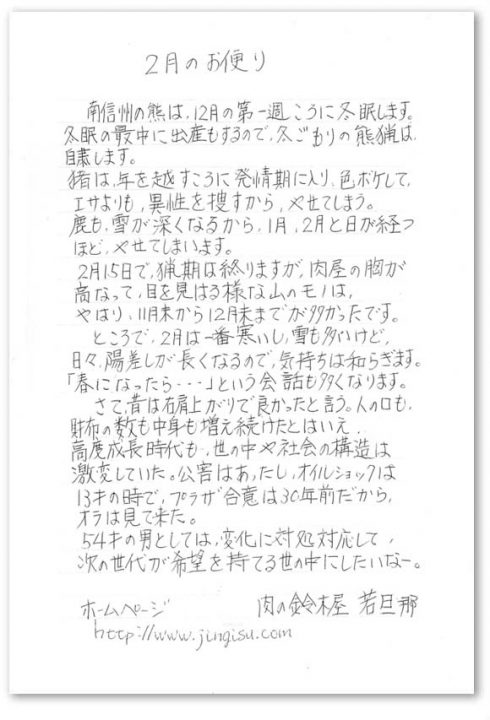 2月のお便り
南信州の熊は、12月の第一週ころに冬眠します。
冬眠の最中に出産もするので、冬ごもりの熊猟は、
自粛します。
猪は、年を越すころに発情期に入り、色ボケして、
エサよりも、異性を捜すから、やせてしまう。
鹿も、雪が深くなるから、1月、2月と日が経つ
ほど、やせてしまいます。
2月15日で、猟期は終りますが、肉屋の胸が
高なって、目を見はる様な山のモノは、
やはり、11月末から12月末までが多かったです。
ところで、2月は一番寒いし、雪も多いけど、
日々、陽差しが長くなるので、気持ちは和らぎます。
「春になったら・・・」という会話も多くなります。
さて、昔は右肩上がりで良かったと言う。人の口も、
財布の数も中身も増え続けたとはいえ、
高度成長時代も、世の中や社会の構造は
激変していた。公害はあったし、オイルショックは
13才の時で、プラザ合意は30年前だから、
オラは見て来た。
54才の男としては、変化に対処対応して、
次の世代が希望を持てる世の中にしたいなー。
ホームページ 肉の鈴木屋 若旦那
http://www.jingisu.com